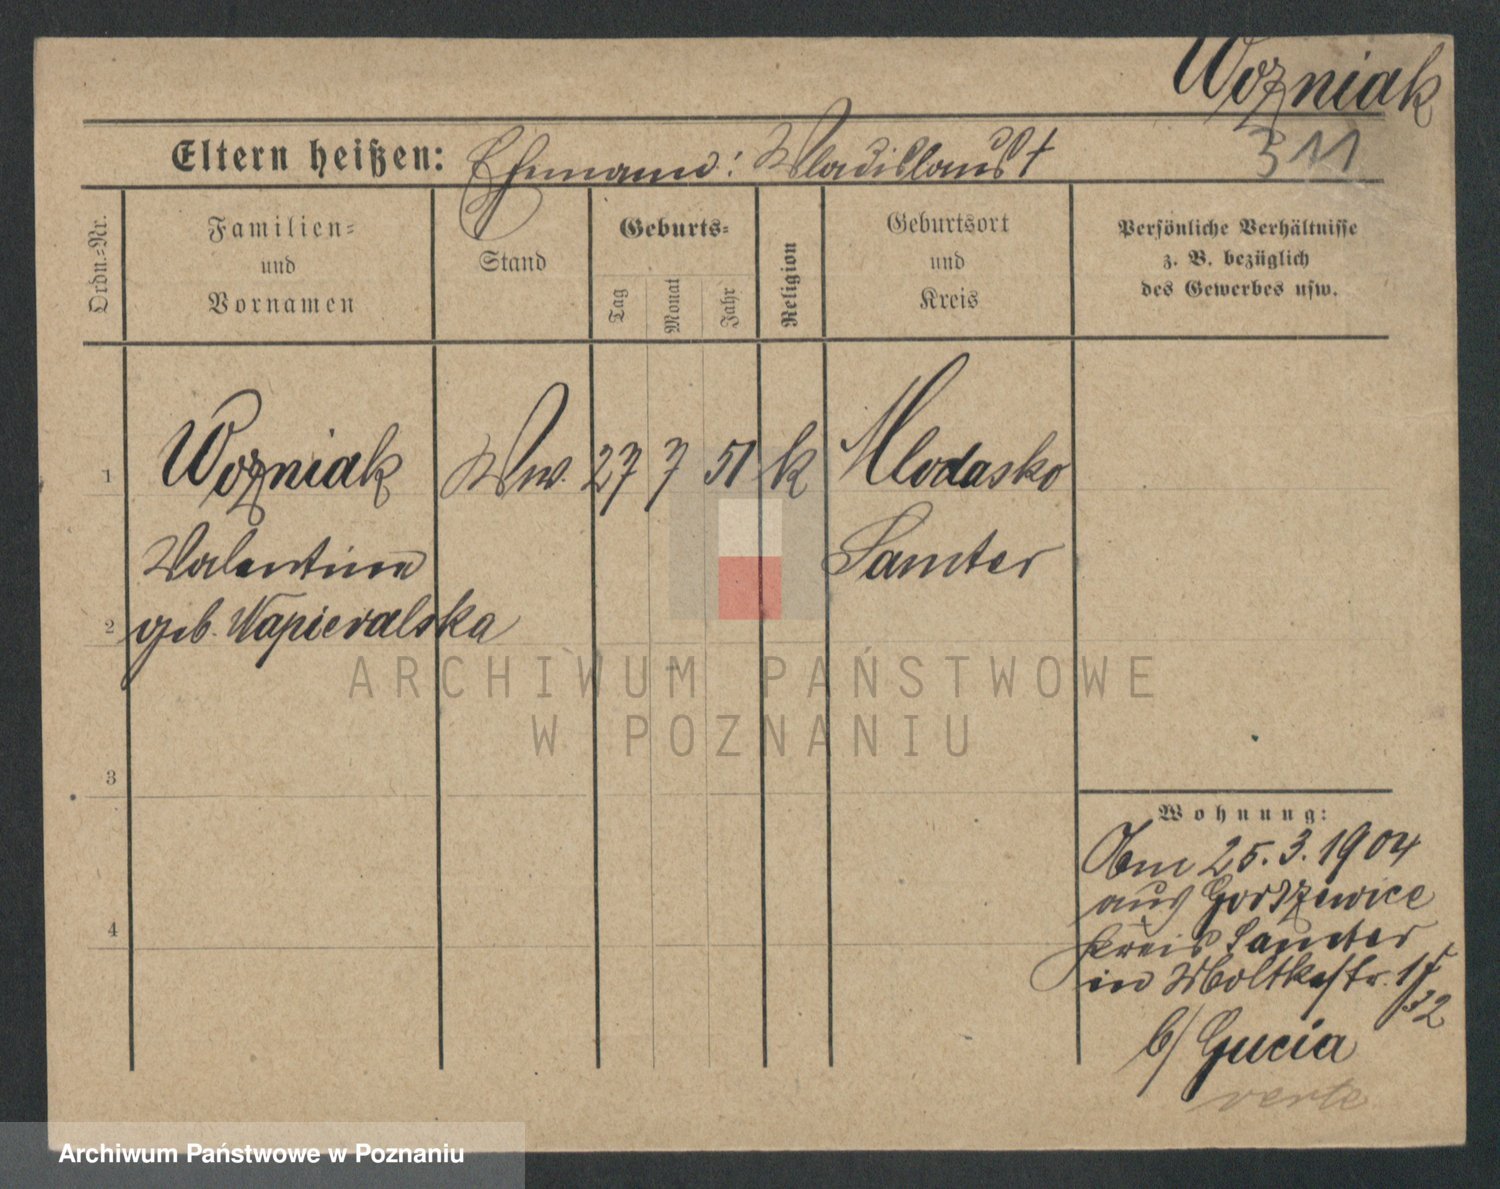 Wozniak
311
Eltern heißen: Ehemann: Wladislaus †
Ordn.-Nr.
Familien-
und
Vornamen
Stand
Geburts-
Tag
Monat
Jahr
Religion
Geburtsort
und
Kreis
Persönliche Verhältnisse
z. B. bezüglich
des Gewerbes usw.
1 Wozniak Ww. 27 7 51 k Mlodasko
Valentine Samter
2 geb. Napieralska
ARCHIWUM PAŃSTWOWE
W POZNANIU
3
Wohnung:
Am 25.3.1904
aus Gorszewice
Kreis Samter
4
in Moltkestr.
b/ Gucia
verte
Archiwum Państwowe w Poznaniu